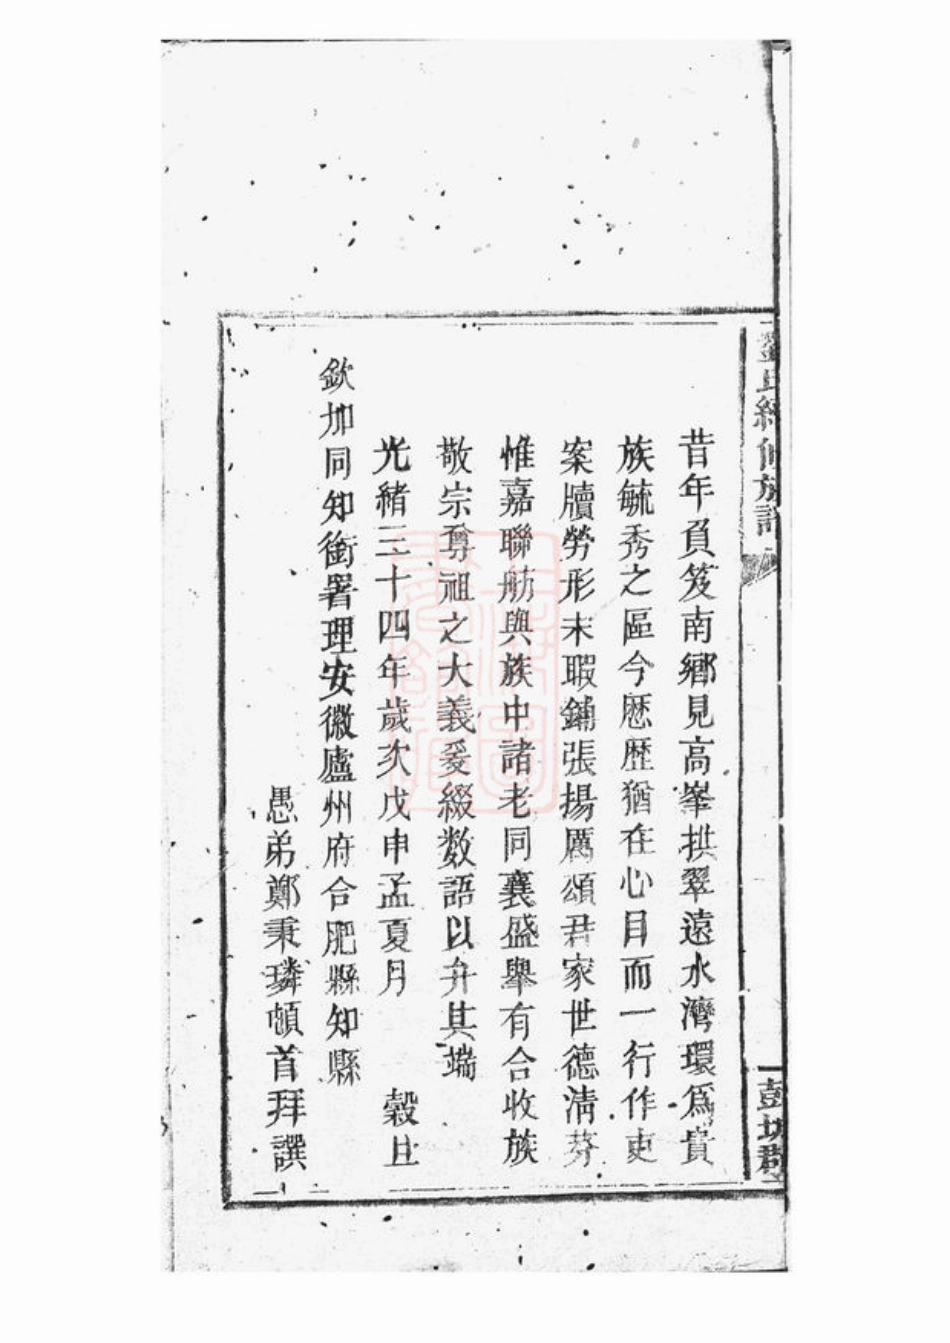 昔年負笈南鄉見高峯拱翠遠水灣環爲貴
族毓秀之區今歷歷猶在心目而一行作吏
案牘勞形未暇鋪張揚厲頌君家世德淸芬
惟嘉聯舫與族中諸老同襄盛舉有合收族
敬宗尊祖之大義爰綴数語以弁其端
光緒三十四年歲次戊申孟夏月 穀旦
欽加同知銜署理安徽廬州府合肥縣知縣
愚弟鄭秉璘頓首拜譔
彭城郡